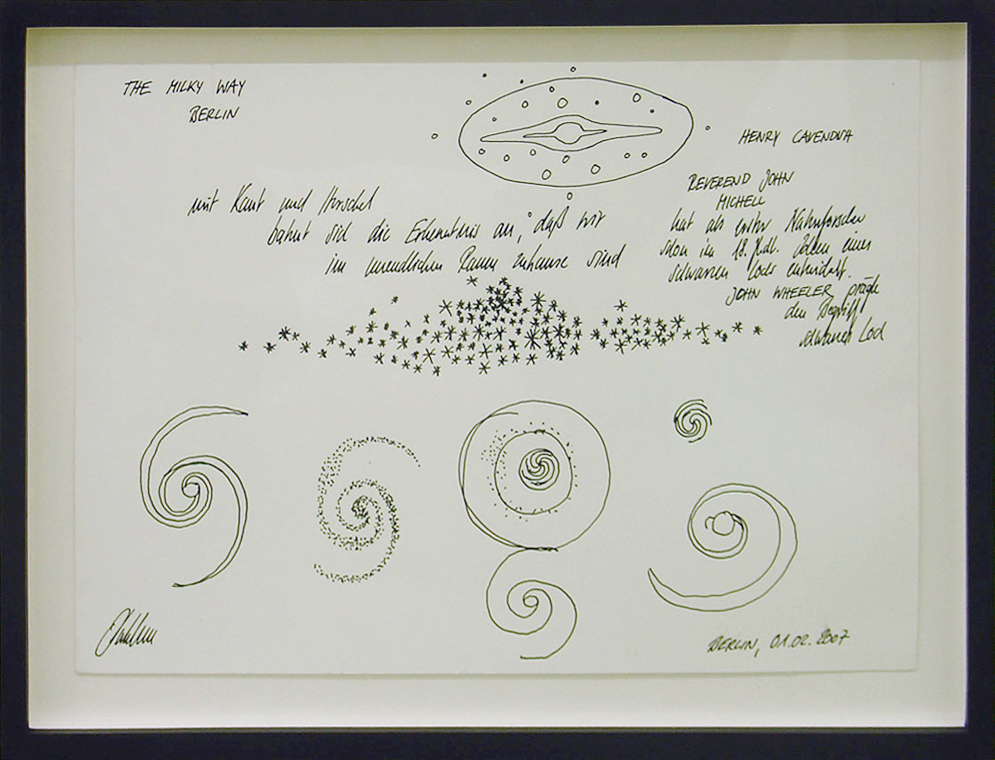 THE MILKY WAY
BERLIN
HENRY CAVENDISH
REVEREND JOHN
MICHELL
hat als erster Naturforscher
schon im 18. Jhdt. Ideen eines
schwarzen Lochs entwickelt.
JOHN WHEELER prägte
den Begriff
schwarzes Loch
mit Kant und Herschel
bahnt sich die Erkenntnis an, daß wir
im unendlichen Raum zuhause sind
BERLIN, 01.02.2007